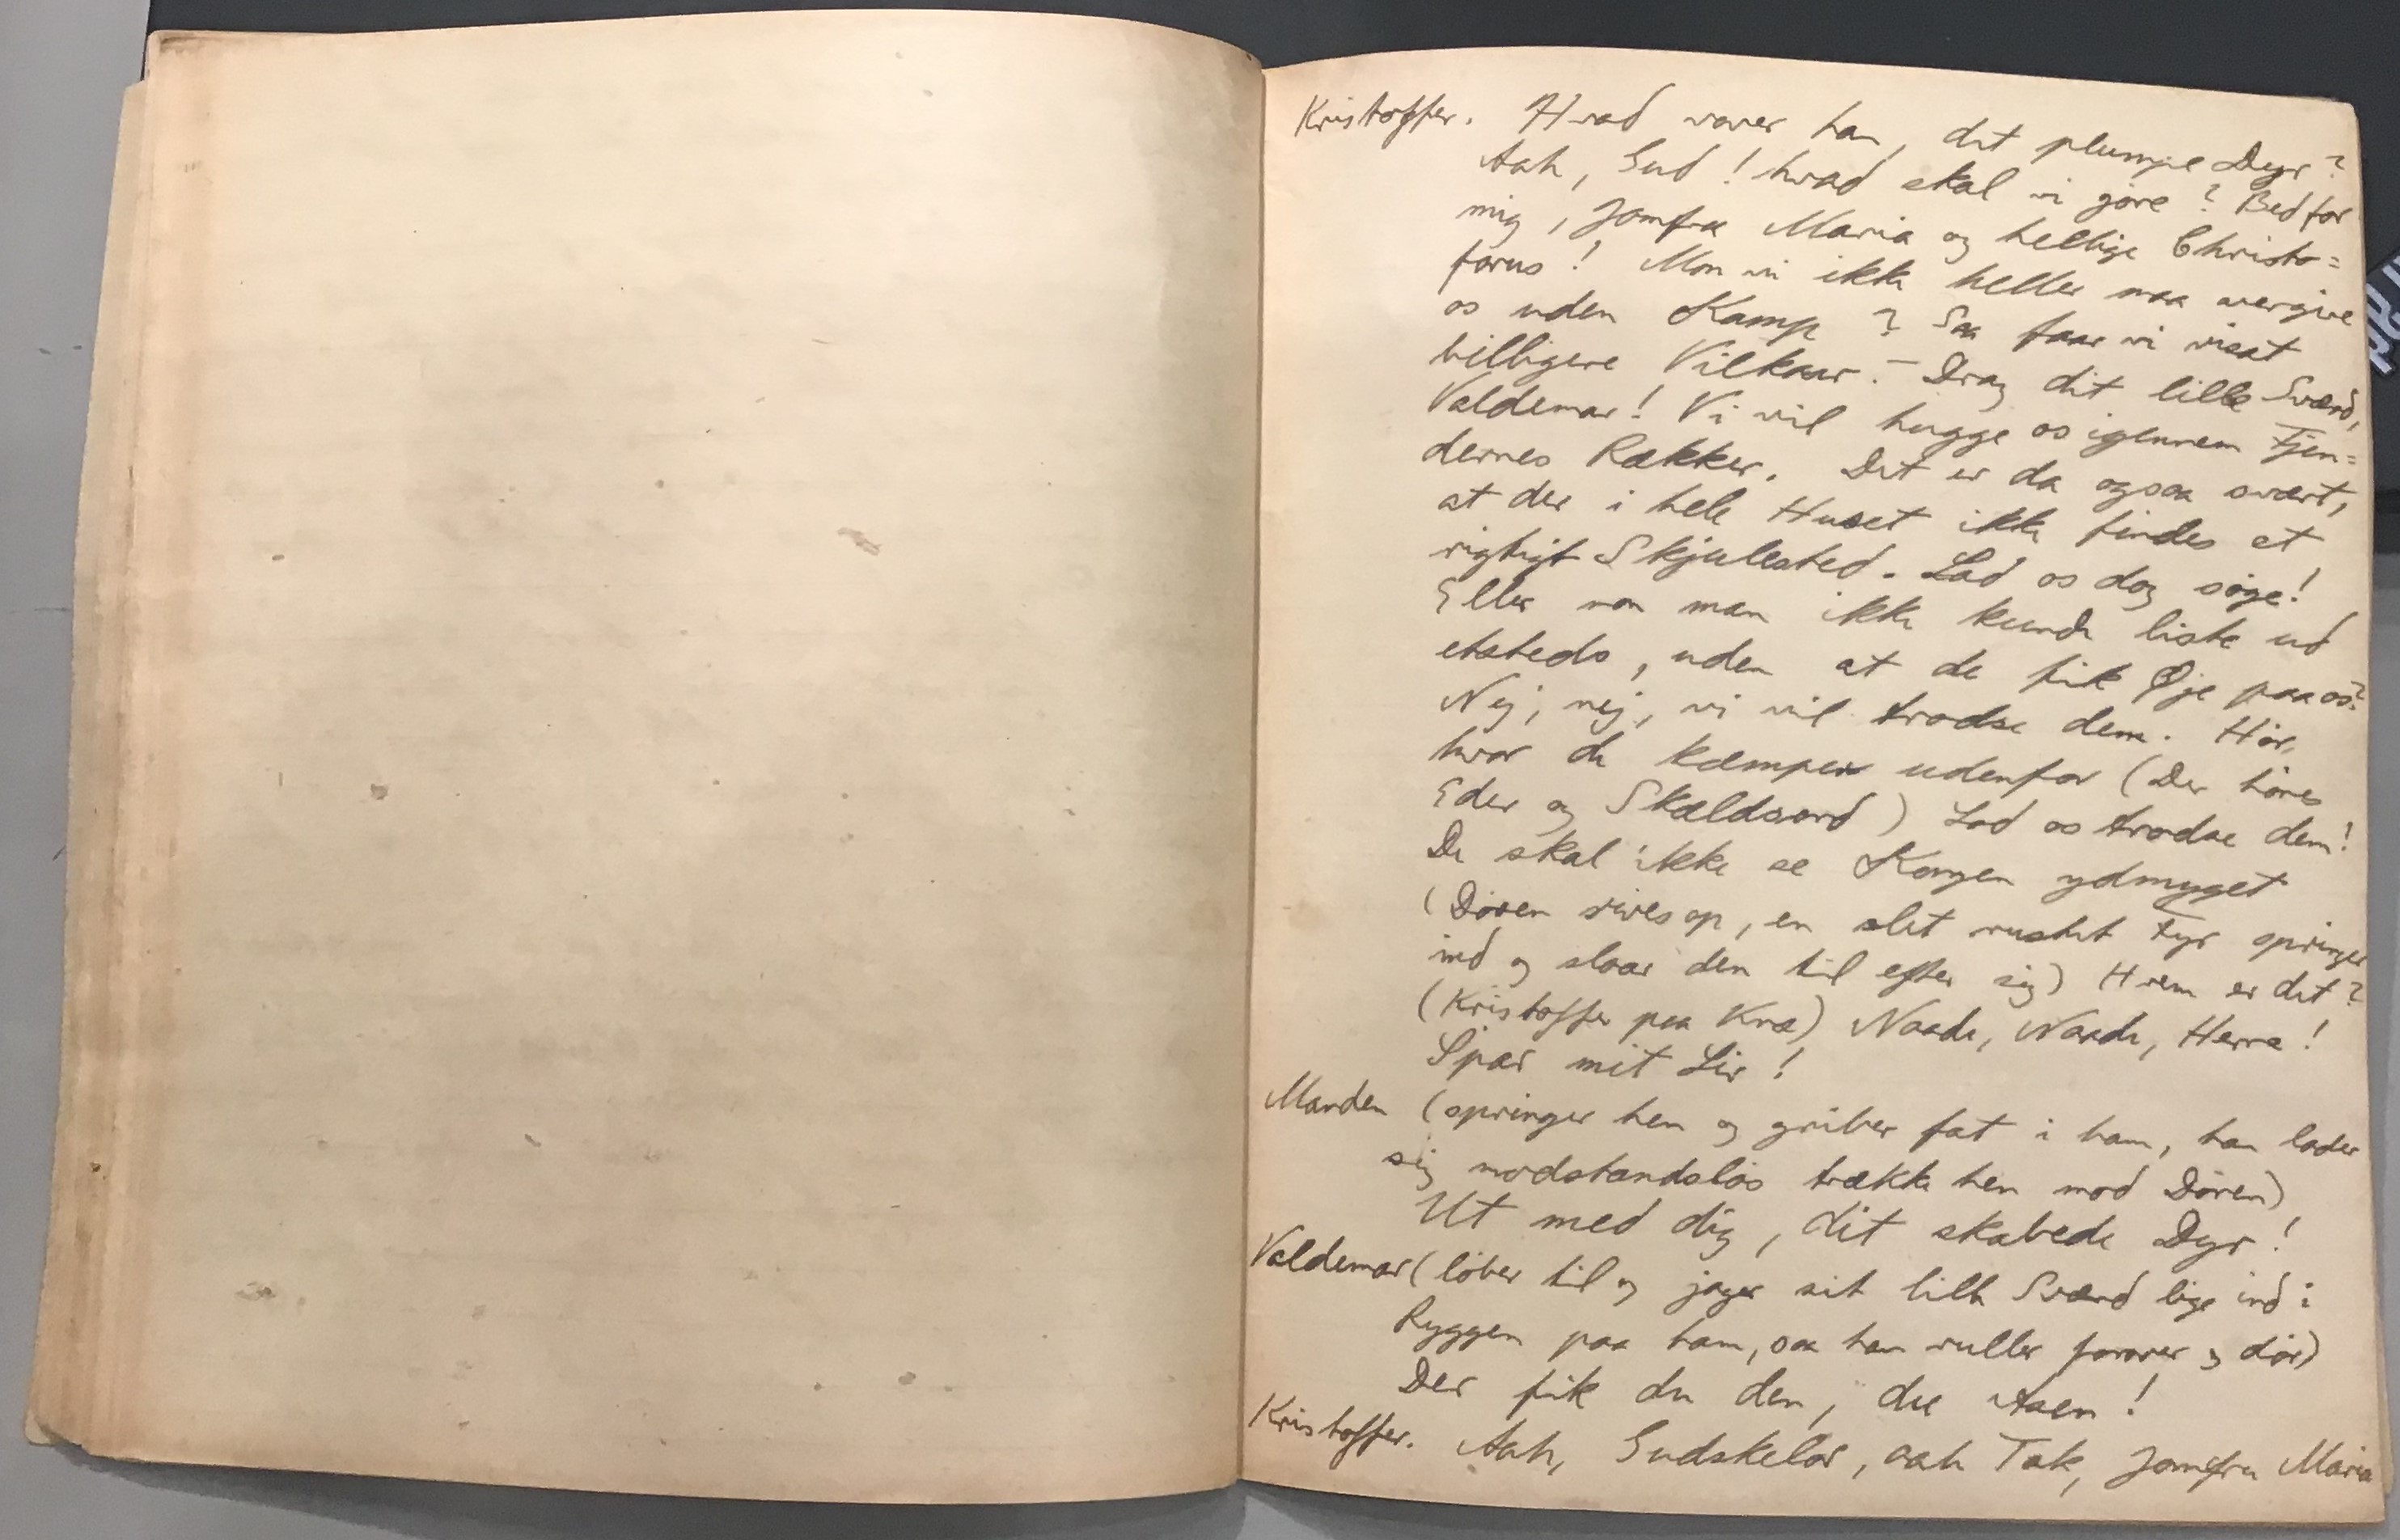 Kristoffer. Hvad vover han, det plumpe Dyr?
Aah, Gud! hvad skal vi gøre? Bed for
mig, Jomfru Maria og hellige Christo=
forus! Mon vi ikke heller maa overgive
os uden Kamp? Saa faar vi visst
billigere Vilkaar. – Drag dit lille Sværd,
Valdemar! Vi vil hugge os igennem Fjen=
dernes Rækker. Det er da ogsaa svært,
at der i hele Huset ikke findes et
rigtigt Skjulested. Lad os dog søge!
Eller mon man ikke kunde liste ud
etsteds, uden at de fik Øje paa os?
Nej, nej, vi vil trodse dem. Hør,
hvor de kæmper udenfor (Der høres
Eder og Skældsord) Lad os trodse dem!
De skal ikke se Kongen ydmyget
(Døren rives op, en slet rustet Fyr springer
ind og slaar den til efter sig) Hvem er det?
(Kristoffer paa Knæ) Naade, Naade, Herre!
Spar mit Liv!
Manden (springer hen og griber fat i ham, han lader
sig modstandsløs trække hen mod Døren)
Ut med dig, dit skabede Dyr!
Valdemar (løber til og jager sit lille Sværd lige ind i
Ryggen paa ham, saa han ruller forover og dør)
Der fik du den, du Asen!
Kristoffer. Aah, Gudskelov, aah Tak, Jomfru Maria